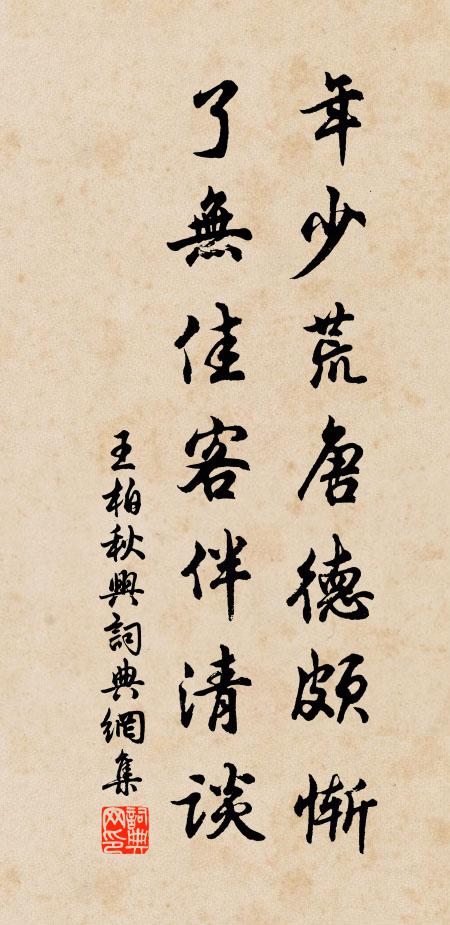 年少荒唐德頗慚
了無佳客伴清談
王柏秋興詞典網集
詞典網印